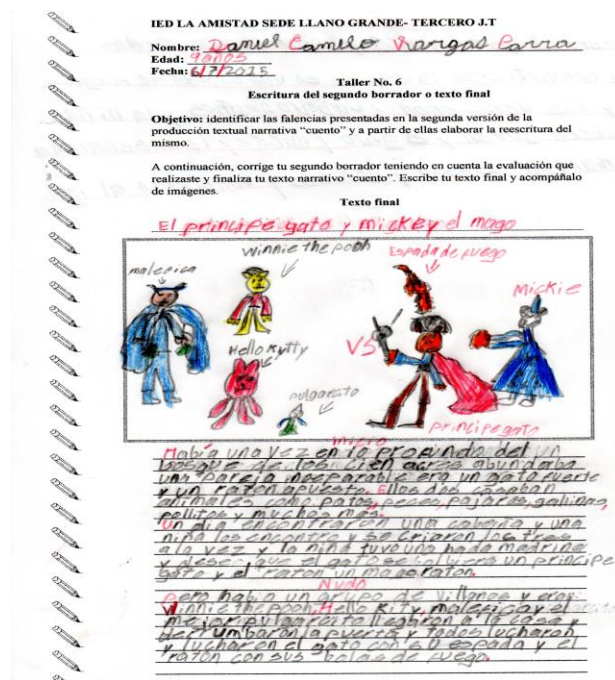 IED LA AMISTAD SEDE LLANO GRANDE- TERCERO J.T
Nombre: Daniel Camilo Vargas Parra
Edad: 9 años
Fecha: 6/7/2015
Taller No. 6
Escritura del segundo borrador o texto final
Objetivo: identificar las falencias presentadas en la segunda versión de la
producción textual narrativa “cuento” y a partir de ellas elaborar la reescritura del
mismo.
A continuación, corrige tu segundo borrador teniendo en cuenta la evaluación que
realizaste y finaliza tu texto narrativo “cuento”. Escribe tu texto final y acompáñalo
de imágenes.
Texto final
El principe gato y mickey el mago
malefica
Winnie the pooh
Espada de fuego
Mickie
Hello Kytty
VS
pulgarcito
principe gato
Inicio
Había una vez en lo profundo del un
bosque de los cien acres abundaba
una pareja inceparable era un gato fuerte
y un raton apuesto. Ellos dos casaban
animales como patos, peces, pajaros, gallinas,
pollitos y muchos mas.
Un dia encontraron una cabaña y una
niña los encontro y se criaron los tres
a la vez y la niña tuvo una hada madrina
y deseo que el gato se un principe
gato y el raton un mago raton.
Nudo
Pero habia un grupo de villanos y eran:
Winnie the pooh, Hello Kity, malefica y el
mejor pulgarcito llegaron a la casa y
derrumbaron la puerta y todos lucharon
y lucharon el gato con su espada y el
raton con sus bolas de fuego.